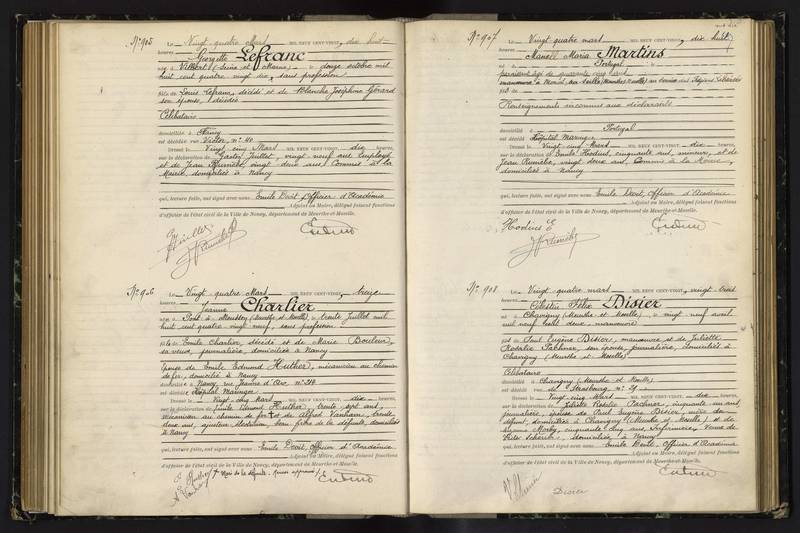 N° 905 Le Vingt-quatre Mars MIL NEUF CENT-VINGT, dix huit
heures,
Georgette Lefranc
née à Villbert (Seine et Marne), le douze octobre mil
huit cent quatre vingt dix, sans profession
fille de Louis Lefranc, décédé et de Blanche Joséphine Gérard
son épouse, décédée
Célibataire
domiciliée à Nancy
est décédée rue Victor, n° 40
Dressé le Vingt cinq Mars MIL NEUF CENT-VINGT, dix heures,
sur la déclaration de Gaston Juillet, vingt neuf ans employé
et de Jean Rumelé, vingt deux ans, Commis à la
Mairie domiciliés à Nancy
qui, lecture faite, ont signé avec nous Emile Devit, Officier d'Académie
Adjoint au Maire, délégué faisant fonctions
d'officier de l'état civil de la Ville de Nancy, département de Meurthe-et-Moselle.
N° 906 Le Vingt-quatre Mars MIL NEUF CENT-VINGT, treize
heures,
Jeanne Charlier
née à Pont à Mousson (Meurthe et Moselle), le trente Juillet mil
huit cent quatre vingt neuf, sans profession
fille de Emile Charlier, décédé et de Marie
sa veuve, journalière, domiciliée à Nancy
épouse de Emile Edmond Huther, mécanicien au chemin
de fer, domicilié à Nancy
domiciliée à Nancy, rue Jeanne d'Arc, n°
est décédée Hôpital Maringer
Dressé le Vingt cinq Mars MIL NEUF CENT-VINGT, dix heures,
sur la déclaration de Emile Edmond Huther, trente sept ans,
Mécanicien au chemin de fer et de Alfred Vanham, trente
deux ans, ajusteur, beau frère de la défunte, domiciliés
à Nancy
qui, lecture faite, ont signé avec nous Emile Devit, Officier d'Académie
Adjoint au Maire, délégué faisant fonctions
d'officier de l'état civil de la Ville de Nancy, département de Meurthe-et-Moselle.
N° 907 Le Vingt quatre mars MIL NEUF CENT-VINGT, dix huit
heures,
Manoel Maria Martins
né à Portugal
âgé de quarante cinq ans
manœuvre à
fils de
Renseignements inconnus aux déclarants
domicilié à Portugal
est décédé Hôpital Maringer
Dressé le Vingt cinq Mars MIL NEUF CENT-VINGT, dix heures,
sur la déclaration de Emile Hodius, cinquante ans, et de
Jean Rumelé, vingt deux ans, Commis à la Mairie,
domiciliés à Nancy
qui, lecture faite, ont signé avec nous Emile Devit, Officier d'Académie
Adjoint au Maire, délégué faisant fonctions
d'officier de l'état civil de la Ville de Nancy, département de Meurthe-et-Moselle.
Hodius E
N° 908 Le Vingt-quatre mars MIL NEUF CENT-VINGT, vingt trois
heures,
Célestin Félix Disier
né à Chavigny (Meurthe et Moselle), le vingt neuf avril
mil neuf cent deux manœuvre
fils de Paul Eugène Disier, manœuvre et de Juliette
Rosalie Pachner, son épouse, journalière, domiciliés à
Chavigny (Meurthe et Moselle)
Célibataire
domicilié à Chavigny (Meurthe et Moselle)
est décédé rue de Strasbourg n°
Dressé le Vingt cinq Mars MIL NEUF CENT-VINGT, dix heures,
sur la déclaration de Juliette Rosalie Pachner, cinquante un ans,
journalière, épouse de Paul Eugène Disier, mère du
défunt, domiciliée à Chavigny (Meurthe et Moselle) et de
cinquante cinq ans, Infirmière, Veuve de
domiciliée à Nancy
qui, lecture faite, ont signé avec nous Emile Devit, Officier d'Académie
Adjoint au Maire, délégué faisant fonctions
d'officier de l'état civil de la Ville de Nancy, département de Meurthe-et-Moselle.
Disier